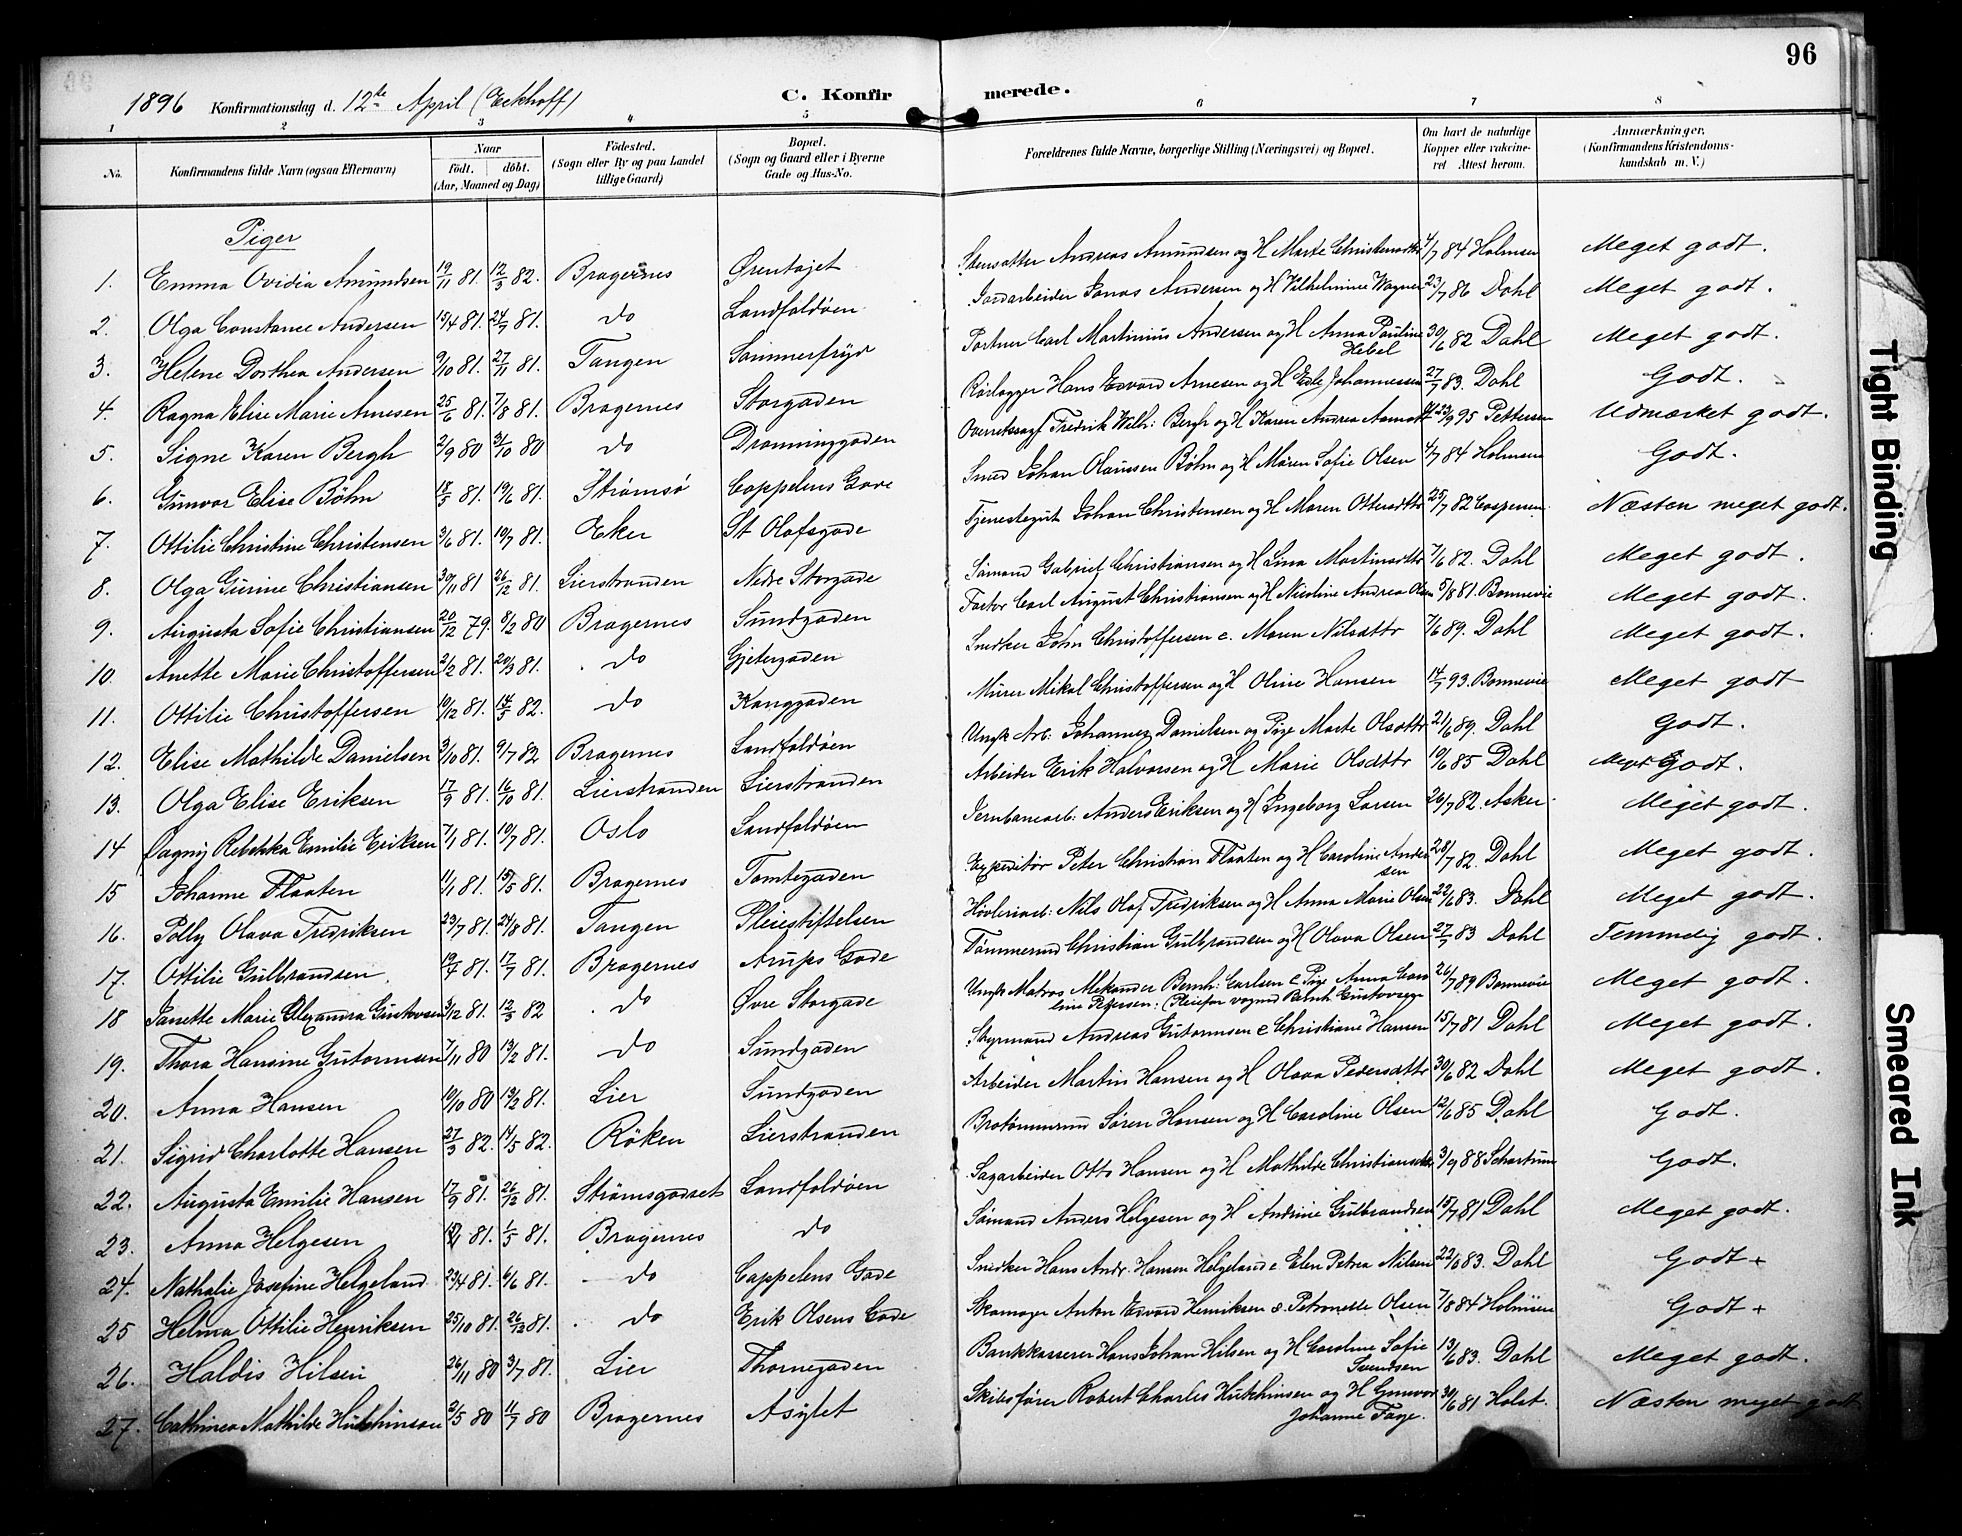 96
1896 Konfirmationsdag d. 12te April (Eckhoff)
C. Konfirmerede.
1 2 3 4 5 6 7 8
No. Konfirmandens fulde Navn (ogsaa Efternavn) Naar födt. döbt. (Aar, Maaned og Dag) Födested. (Sogn eller By og paa Landet tillige Gaard) Bopæl. (Sogn og Gaard eller i Byerne Gade og Hus-No. Forældrenes fulde Navne, borgerlige Stilling (Næringsvei) og Bopæl. Om havt de naturlige Kopper eller vakcineret Attest herom. Anmærkninger. (Konfirmandens Kristendomskundskab m. V.)
Piger
1. Emma Ovidia Amundsen 19/11 81. 12/3 82. Bragernes Ørentøjet Andreas Amundsen og H Marte Christensdttr 4/7 84 Holmsen Meget godt.
2. Olga Constance Andersen 15/4 81. 24/7 81. do Landfaldøen Jordarbeider Jonas Andersen og H Vilhelmine Wagner 23/7 86 Dahl Meget godt.
3. Helene Dorthea Andersen 9/10 81. 27/11 81. Tangen Sommerfryd Portner Carl Martinius Andersen og H Anna Pauline Hebel 30/6 82 Dahl Meget godt.
4. Ragna Elise Marie Arnesen 25/6 81. 7/8 81. Bragernes Storgaden Rørlægger Hans Edvard Arnesen og H Edle Johannessen 27/7 83. Dahl Godt.
5. Signe Karen Bergh 2/9 80 31/10 80 do Dronninggaden Overretssagf Fredrik Wilh: Bergh og H Karen Andrea 23/9 95 Pettersen Udmærket godt.
6. Gunvor Elise Böhn 18/5 81. 19/6 81. Strømsö Cappelens Gade Smed Johan Olaussen Bøhn og H Maren Sofie Olsen 4/7 84 Holmsen Godt.
7. Ottilie Christine Christensen 3/6 81. 10/7 81. Eker St Olafsgade Tjenestegut Johan Christensen og H Maren Ottersdttr 25/7 82 Caspersen Næsten meget godt.
8. Olga Gurine Christiansen 30/11 81 26/12 81. Lierstranden Nedre Storgade Sømand Gabriel Christiansen og H Lina Martinsdttr 7/6 82. Dahl Meget godt.
9. Augusta Sofie Christiansen 20/12 79. 8/2 80 Bragernes Sundgaden Faktor Carl August Christiansen og H Nicoline Andrea Olsen 5/8 81. Bonnevie Meget godt.
10. Anette Marie Christoffersen 2/2 81. 20/3 81. do Gjetergaden Snedker John Christoffersen e. Maren Nilsdttr 7/6 89. Dahl Meget godt.
11. Ottilie Christoffersen 10/12 81. 14/5 82. do Konggaden Murer Mikal Christoffersen og H Oline Hansen 14/7 93. Bonnevie Meget godt
12. Elise Mathilde Danielsen 3/10 81. 9/7 82 Bragernes Landfaldöen Ungk Arb: Johannes Danielsen og Pige Marte Olsdttr 21/6 89. Dahl Godt.
13. Olga Elise Eriksen 17/9 81. 16/10 81. Lierstranden Lierstranden Arbeider Erik Halvorsen og H Marie Olsdttr 10/6 85 Dahl Meget Godt.
14 Dagny Rebekka Emilie Eriksen 7/1 81. 10/7 81. Oslo Landfaldöen Jernbanearb: Anders Eriksen og H Ingeborg Larsen 26/7 82. Asker Meget godt.
15 Johanne Flaaten 11/1 81. 15/5 81. Bragernes Tomtegaden Expeditör Peter Christian Flaaten og H Caroline Andersen 28/7 82. Dahl Meget godt.
16. Polly Olava Fredriksen 23/7 81. 24/8 81. Tangen Pleiestiftelsen Hövleriarb: Nils Olaf Fredriksen og H Anna Marie Olsen 22/6 83. Dahl Meget godt.
17. Ottilie Gulbrandsen 19/4 81. 17/7 81. Bragernes Arups Gade Tömmermd Christian Gulbrandsen og H Olava Olsen 27/7 83 Dahl Temmelig godt.
18 Janette Marie Alexandra Gustavsen 3/12 81. 12/3 82 do Øvre Storgade Ungk Matros Alexander Bernh: Carlsen e Pige Anna Caroline Petersen: (Pleiefar vognmd Bernh Gustavsen 26/7 89 Bonnevie Meget godt.
19. Thora Hansine Gutormsen 7/11 80 13/2 81. do Sundgaden Styrmand Andreas Gutormsen e Christiane Hansen 15/7 81 Dahl Meget godt.
20. Anna Hansen 10/10 80 13/2 81. Lier Sundgaden Arbeider Martin Hansen og H Olava Pedersdttr 30/6 82 Dahl Meget godt.
21. Sigrid Charlotte Hansen 27/3 82. 14/5 82. Röken Lierstranden Brotömmermd Sören Hansen og H Caroline Olsen 12/6 85 Dahl Godt.
22. Augusta Emilie Hansen 17/9 81. 26/12 81. Strömsgodset Landfaldöen Sagarbeider Otto Hansen og H Mathilde Christiansdttr 3/9 88 Schartum Godt.
23. Anna Helgesen 81. 1/5 81. Bragernes do Sömand Anders Helgesen og H Andrine Gulbrandsen 15/7 81 Dahl Meget godt.
24. Nathalie Josefine Helgeland 23/4 81. 6/6 81. do Cappelens Gade Snedker Hans Andr. Hansen Helgeland e Elen Petrea Nilsen 22/6 83. Dahl Godt +
25 Helma Ottilie Henriksen 25/10 81. 26/12 81. do Erik Olsens Gade Skomager Anton Edvard Henriksen & Petronelle Olsen 7/8 84 Holmsen Godt +
26. Haldis Hilsen 26/11 80 3/7 81. Lier Thornegaden Bankkasserer Hans Johan Hilsen og H Caroline Sofie Svendsen 13/6 83. Dahl Meget godt.
27. Cathinca Mathilde Hutchinson 2/5 80 11/7 80 Bragernes Asylet Skibsfører Robert Charles Hutchinsen og H Gunvor Johanne Faye. 30/6 81 Holst. Næsten meget godt
Tight Binding
Smeared Ink